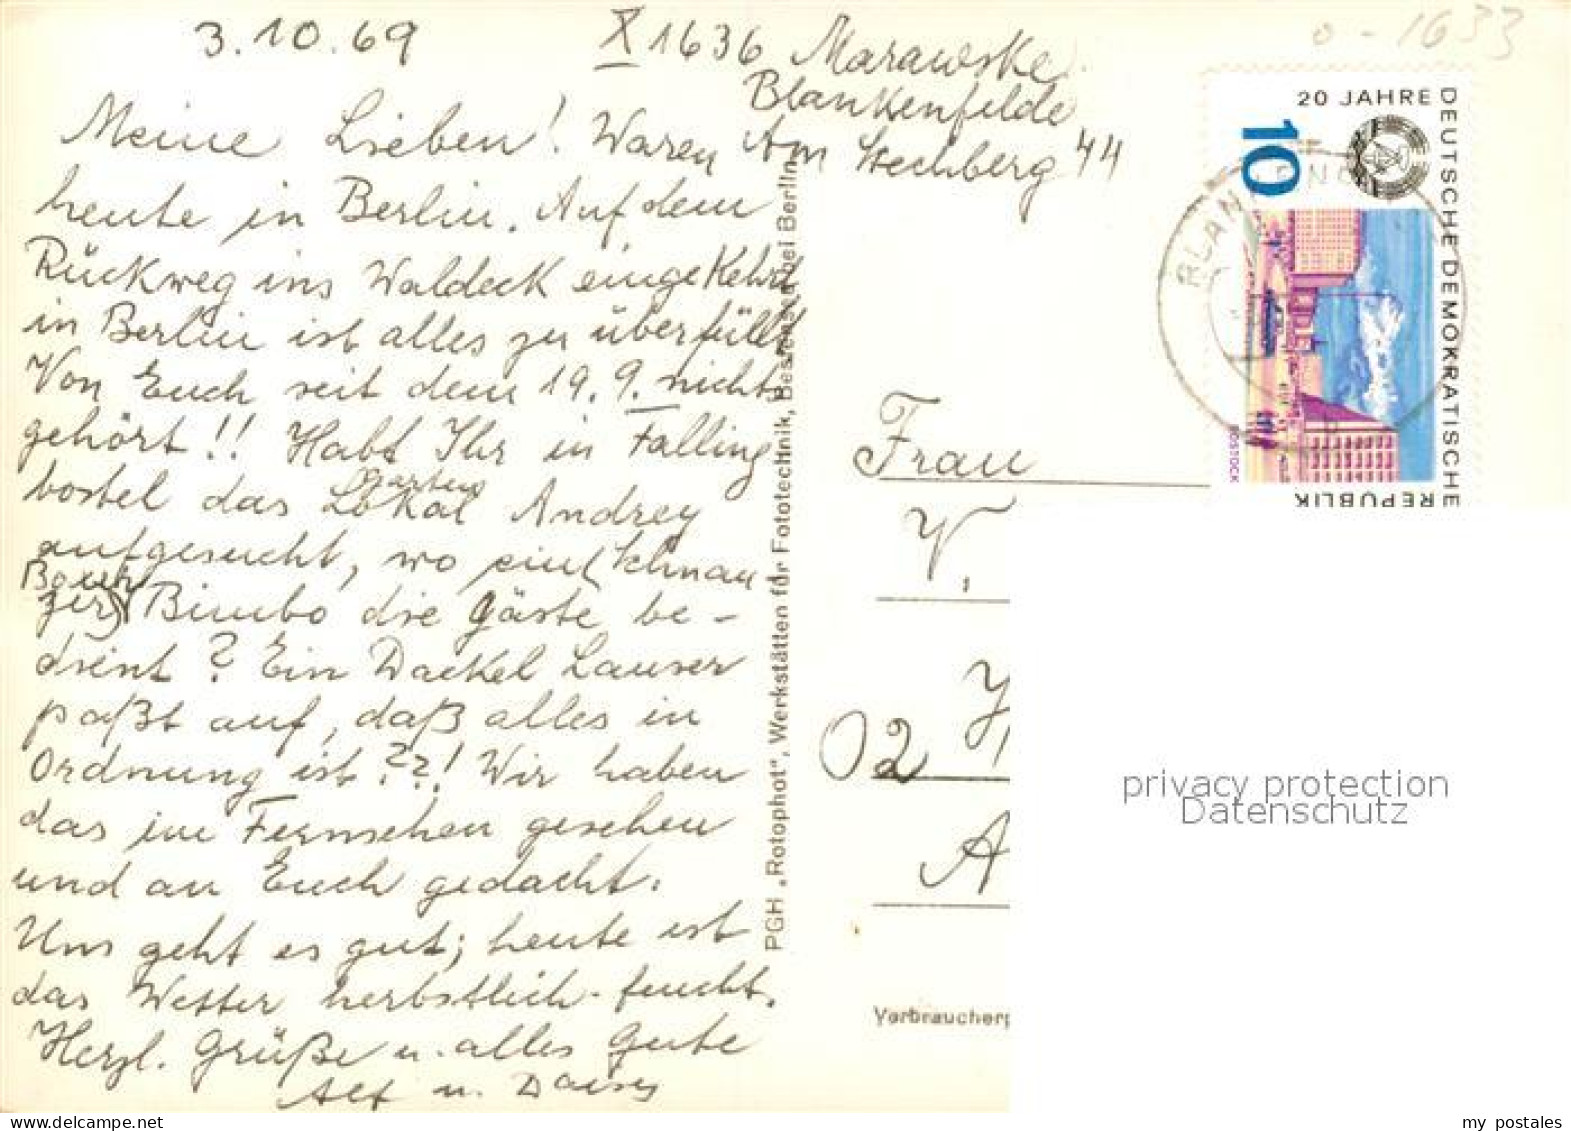 3.10.69
X 1636 Marawske
Blankenfelde
Am Stechberg 44
Meine Lieben! Waren
heute in Berlin. Auf dem
Rückweg ins Waldeck eingekehrt
in Berlin ist alles zu überfüllt
Von Euch seit dem 19.9. nichts
gehört!! Habt Ihr in Falling
bostel das Garten
Lokal Andrey
aufgesucht, wo ein (Schnau
zer) Boxer Bimbo die Gäste be-
dient? Ein Dackel Lauser
paßt auf, daß alles in
Ordnung ist??! Wir haben
das im Fernsehen gesehen
und an Euch gedacht.
Uns geht es gut; heute ist
das Wetter herbstlich-feucht.
Herzl. Grüße u. alles Gute
Alf u.
PGH „Rotophot", Werkstätten für Fototechnik, Bestensee bei Berlin
0-1633
20 JAHRE DEUTSCHE DEMOKRATISCHE
REPUBLIK
10
ROSTOCK
Frau
V.
02
A
Verbraucherp
privacy protection
Datenschutz
www.delcampe.net
my_postales